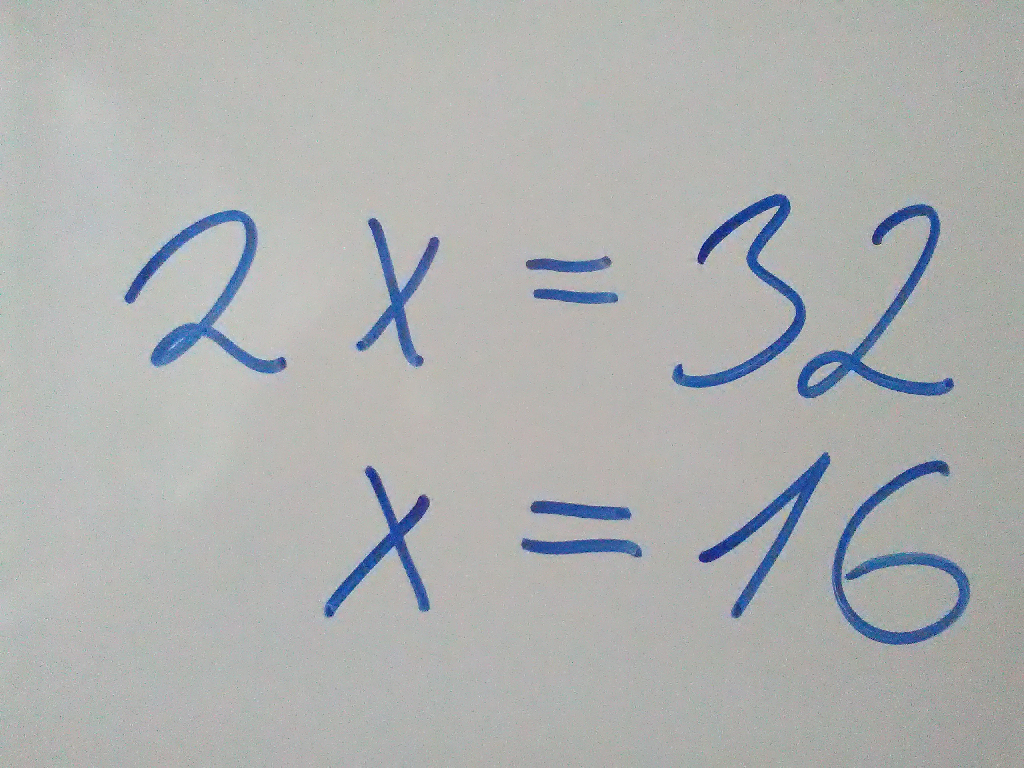 2x = 32
x = 16